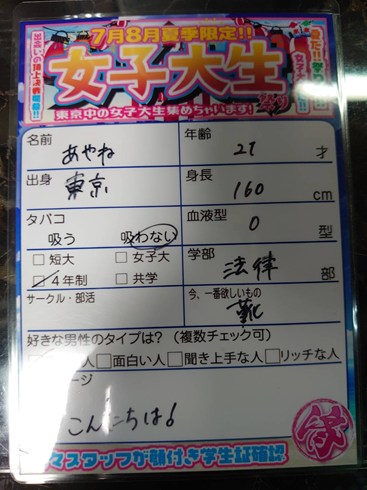 7月8月夏季限定!!
女子大生
祭り
東京中の女子大生集めちゃいます!
名前 あやね
年齢 21才
出身 東京
身長 160cm
タバコ
吸う 吸わない
血液型 O型
□短大 □女子大
☑4年制 □共学
学部 法律部
サークル・部活
今、一番欲しいもの
靴
好きな男性のタイプは?(複数チェック可)
人 □面白い人 □聞き上手な人 □リッチな人
ージ
こんにちは!
スタッフが顔付き学生証確認